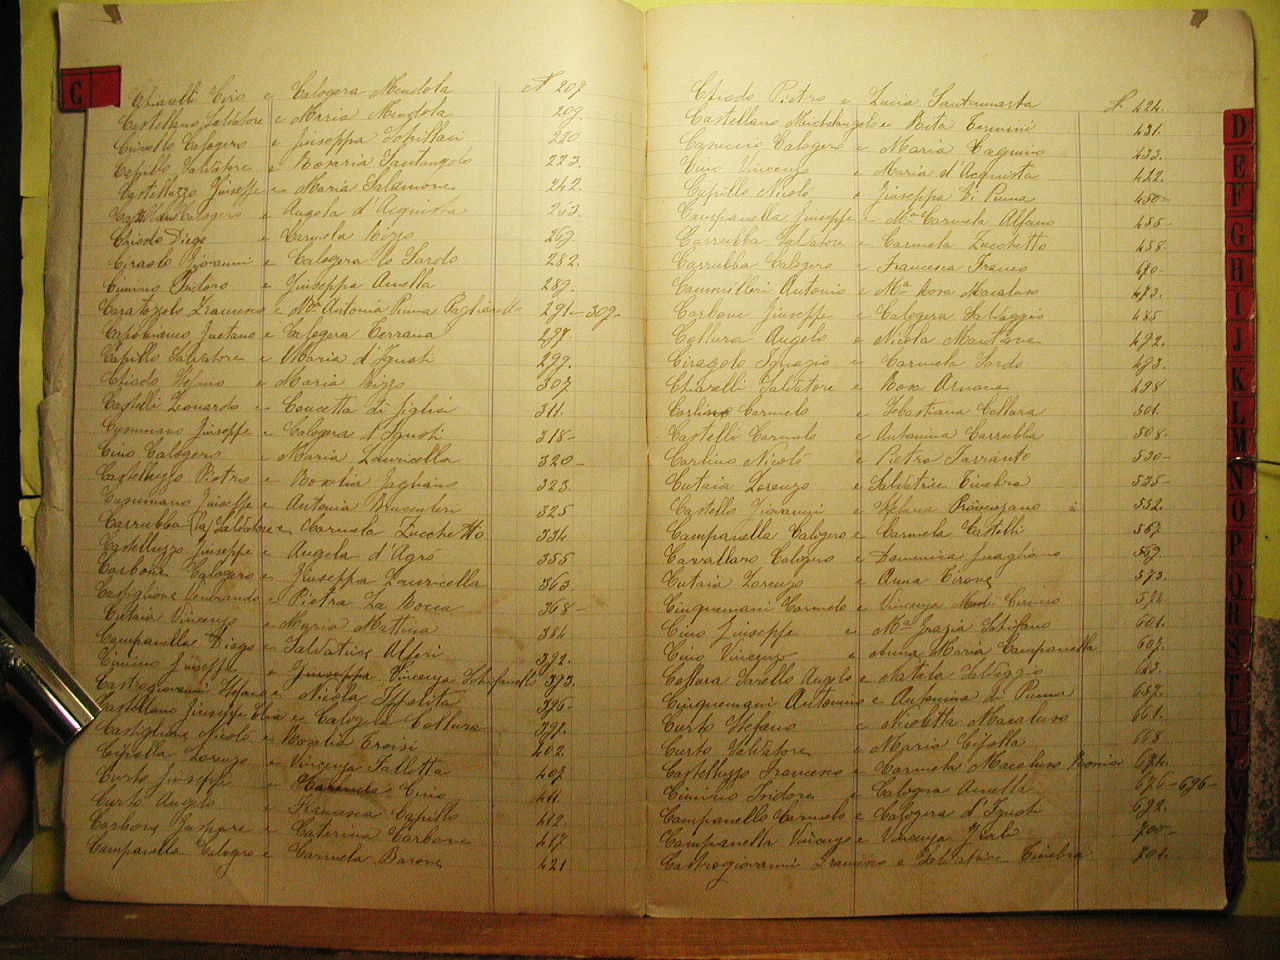 C
Chiarelli Ciro e Calogera Mendola N. 207
Castellano Salvatore e Maria Mendola 209.
Calogero e Giuseppa 220
Capillo Salvatore e Rosaria Santangelo 223.
Castelluzzo Giuseppe e Maria Salamone 242.
Calogero e Angela d'Acquista 263.
Chiodo Diego e Carmela Rizzo 267
Ciraolo Giovanni e Calogera lo Sardo 282.
Cimino Isidoro e Giuseppa Anella 289.
Caratozzolo Francesco e Mª Antonia Puma 291 - 309-
Capobianco Gaetano e Calogera Terrana 297.
Capillo Salvatore e Maria d'Iguoti 299.
Chiodo Stefano e Maria Rizzo 307
Castelli Leonardo e Concetta di Giglia 311.
Cusumano Giuseppe e Calogera d'Iguoti 318-
Cino Calogero e Maria Lauricella 320-
Castelluzzo Pietro e Rosalia 323.
Cusumano Giuseppe e Antonia Bruccoleri 325
Carrubba (la) Salvatore e Carmela Zucchetto 334
Castelluzzo Giuseppe e Angela d'Agrò 355
Carbone Calogero e Giuseppa Lauricella 363
Castiglione Venerando e Pietra La Rocca 368-
Cutaia Vincenzo e Maria Mattina 384
Campanella Diego e Salvatrice Alfieri 392.
Cimino Giuseppe e Giuseppa Vincenza 393.
Castrogiovanni Stefano e Nicola Ippolita 396-
Castellano Giuseppe e Calogera Collura 397.
Castiglione Nicolò e Rosalia Troisi 402.
Cipolla Lorenzo e Vincenza Falletta 407
Curto Giuseppe e Carmela Cino 411
Curto Angelo e Francesca Capillo 412.
Carbone Gaspare e Caterina Carbone 417
Campanella Calogero e Carmela Barone 421
Chiodo Pietro e Lucia Santammarta N. 424.
Castellano Michelangelo e Rita Termini 431.
Capuccio Calogero e Maria Cagnina 433.
Cino Vincenzo e Maria d'Acquista 442.
Capillo Nicolò e Giuseppa Di Puma 450-
Campanella Giuseppe e Mª Carmela Alfano 455-
Carrubba Salvatore e Carmela Zucchetto 458.
Carrubba Calogero e Francesca Franco 470-
Cammilleri Antonio e Mª Rosa Macaluso 473.
Carbone Giuseppe e Calogera Salvaggio 485
Collura Angelo e Nicola Mantione 492.
Ciraolo Ignazio e Carmela Sardo 493.
Chiarelli Salvatore e Rosa Arnone 498
Carlino Carmelo e Sebastiana Collura 501.
Castelli Carmelo e Antonina Carrubba 508.
Carlino Nicolò e Pietra Farranto 530-
Cutaia Lorenzo e Salvatrice Tinebra 535-
Castello Giovanni e Stefana Provenzano 552.
Campanella Calogero e Carmela Castelli 567
Cavallaro Calogero e Domenica Guagliano 569.
Cutaia Lorenzo e Anna Tirone 573.
Cinquemani Carmelo e Vincenza Cimino 576
Cino Giuseppe e Mª Grazia Schifano 601.
Cino Vincenzo e Anna Maria Campanella 607.
Collura Sarello Angelo e Natala Salvaggio
Cinquemani Antonino e Antonina di Puma 657.
Curto Stefano e Nicoletta Macaluso 661.
Curto Salvatore e Maria Cipolla 668
Castelluzzo Francesco e Carmela Macaluso
Cimino Isidoro e Calogera Anella 676-696-
Campanella Carmelo e Calogera d'Iguoti 692.
Campanella Vincenzo e Vincenza 700-
Castrogiovanni Francesco e Salvatrice Tinebra 701.
D
E
F
G
H
I
J
K
L
M
N
O
P
Q
R
S
T
U
V